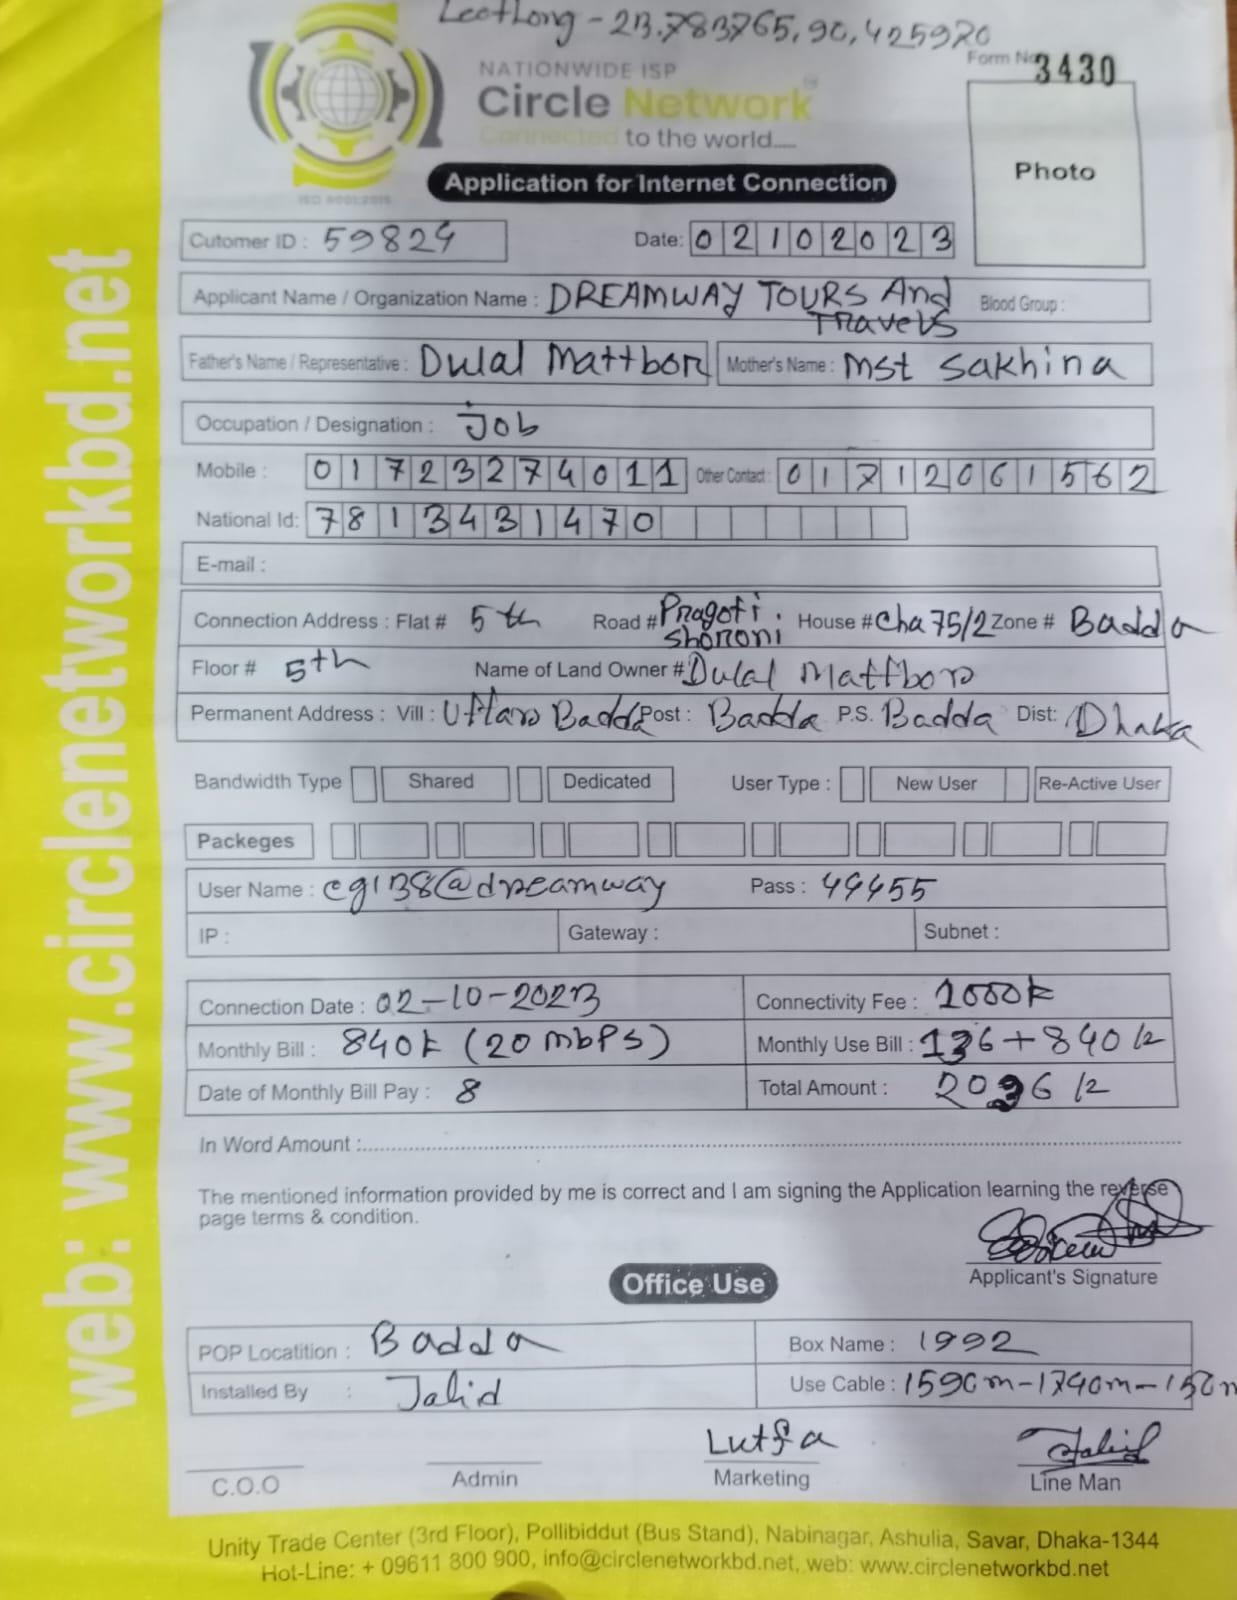 LeetLong - 23.783765, 90,425920
Form No 3430
NATIONWIDE ISP
Circle Network
Connected to the world.....
ISO 9001:2015
Photo
Application for Internet Connection
Cutomer ID : 59824
Date: 02102023
Applicant Name / Organization Name : DREAMWAY TOURS And Travels
Blood Group :
Father's Name / Representative : Dulal Mattbor
Mother's Name : Mst Sakhina
Occupation / Designation : Job
Mobile : 01723274011 Other Contact : 01712061562
National Id: 7813431470
E-mail :
Connection Address : Flat # 5th Road # Pragoti shoroni House # Cha 75/2 Zone # Badda
Floor # 5th Name of Land Owner # Dulal Mattbor
Permanent Address : Vill : Uttar Badda Post : Badda P.S. Badda Dist: Dhaka
Bandwidth Type Shared Dedicated User Type : New User Re-Active User
Packeges
User Name : cg138@dreamway Pass : 44455
IP : Gateway : Subnet :
Connection Date : 02-10-2023 Connectivity Fee : 1000k
Monthly Bill : 840k (20 mbps) Monthly Use Bill : 136+840/2
Date of Monthly Bill Pay : 8 Total Amount : 2036/2
In Word Amount :
The mentioned information provided by me is correct and I am signing the Application learning the reverse
page terms & condition.
Applicant's Signature
Office Use
POP Locatition : Badda Box Name : 1992
Installed By : Jalid Use Cable : 1590m-1740m-150m
C.O.O
Admin
Lutfa
Marketing
Jalid
Line Man
Unity Trade Center (3rd Floor), Pollibiddut (Bus Stand), Nabinagar, Ashulia, Savar, Dhaka-1344
Hot-Line: + 09611 800 900, info@circlenetworkbd.net, web: www.circlenetworkbd.net
web: www.circlenetworkbd.net